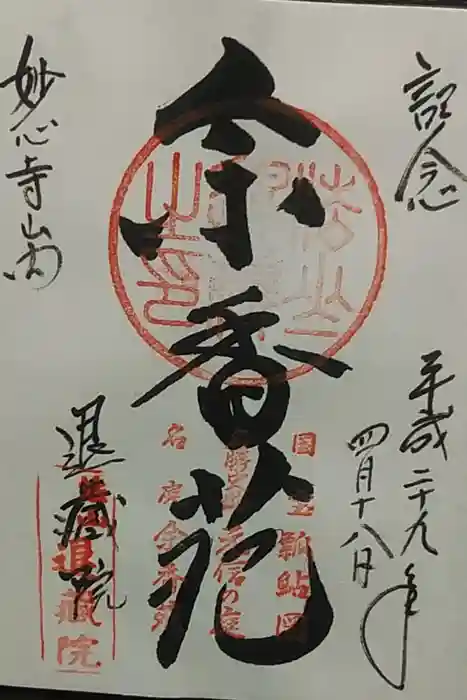 記念
平成二十九年
四月十八日
余香苑
国宝瓢鮎図
元信の庭
名庭余香苑
妙心寺山内
退蔵院
退蔵院